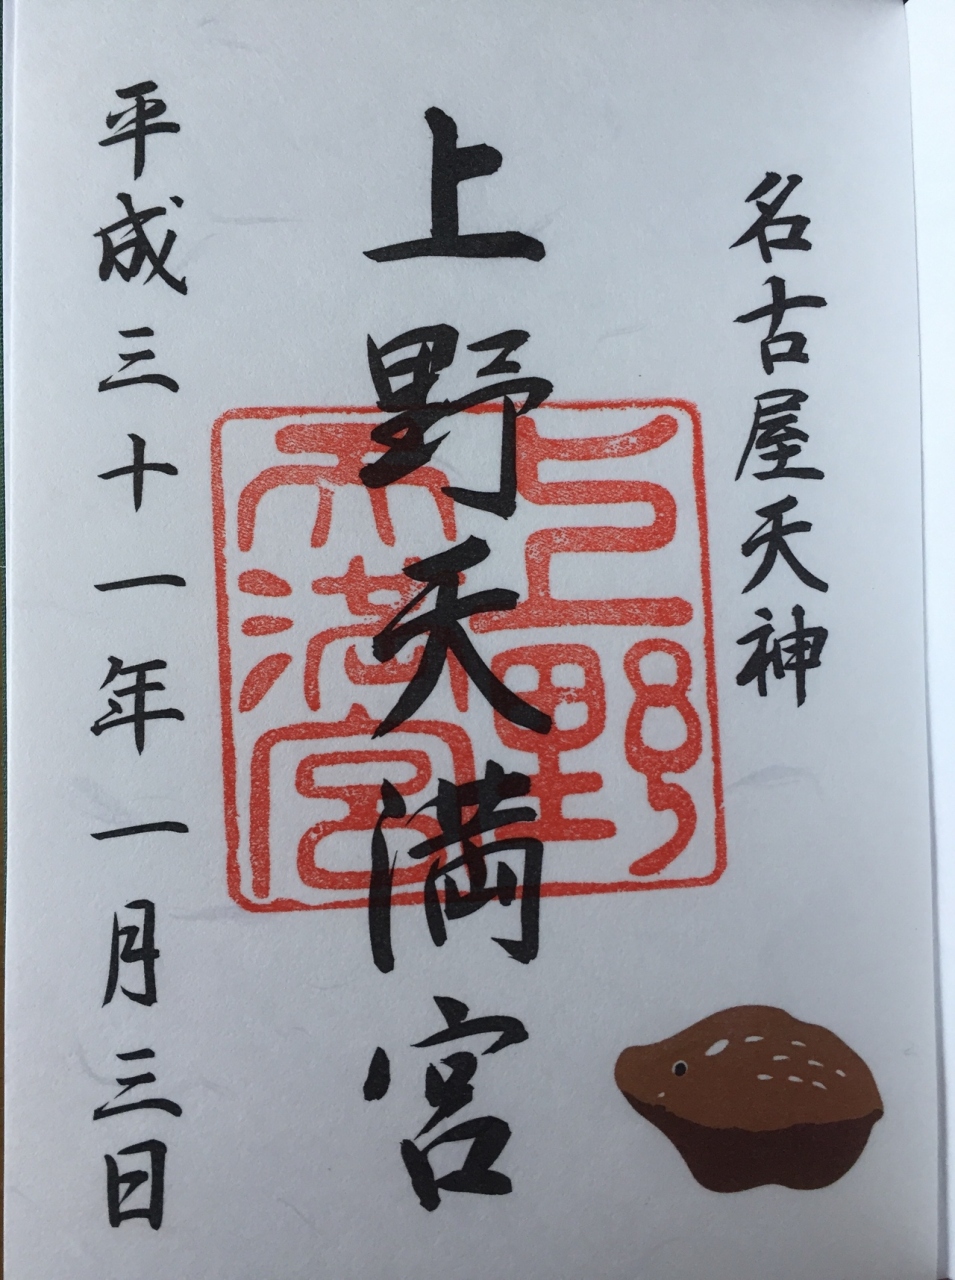 名古屋天神
上野天満宮
上野
天満宮
平成三十一年一月三日